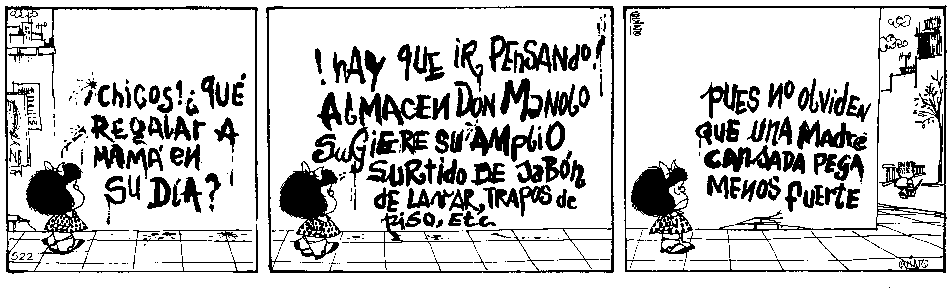 ¡CHICOS! ¿QUÉ
REGALAR A
MAMÁ EN
SU DÍA?
522
!HAY QUE IR PENSANDO!
ALMACEN DON MANOLO
SUGIERE SU AMPLIO
SURTIDO DE JABÓN
DE LAVAR, TRAPOS de
PISO, Etc.
PUES NO OLVIDEN
QUE UNA MADRE
CANSADA PEGA
MENOS FUERTE
QUINO